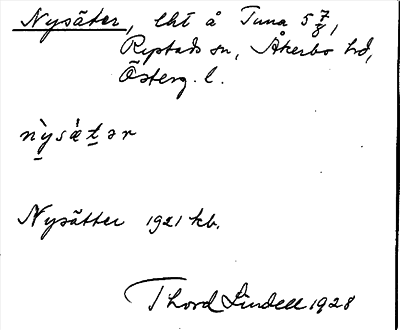 Nysäter, lht å Tuna 5 7/8,
Rystads sn, Åkerbo hd,
Österg. l.
nỳsǽtər
Nysätter 1921 kb.
Thord Lindell 1928